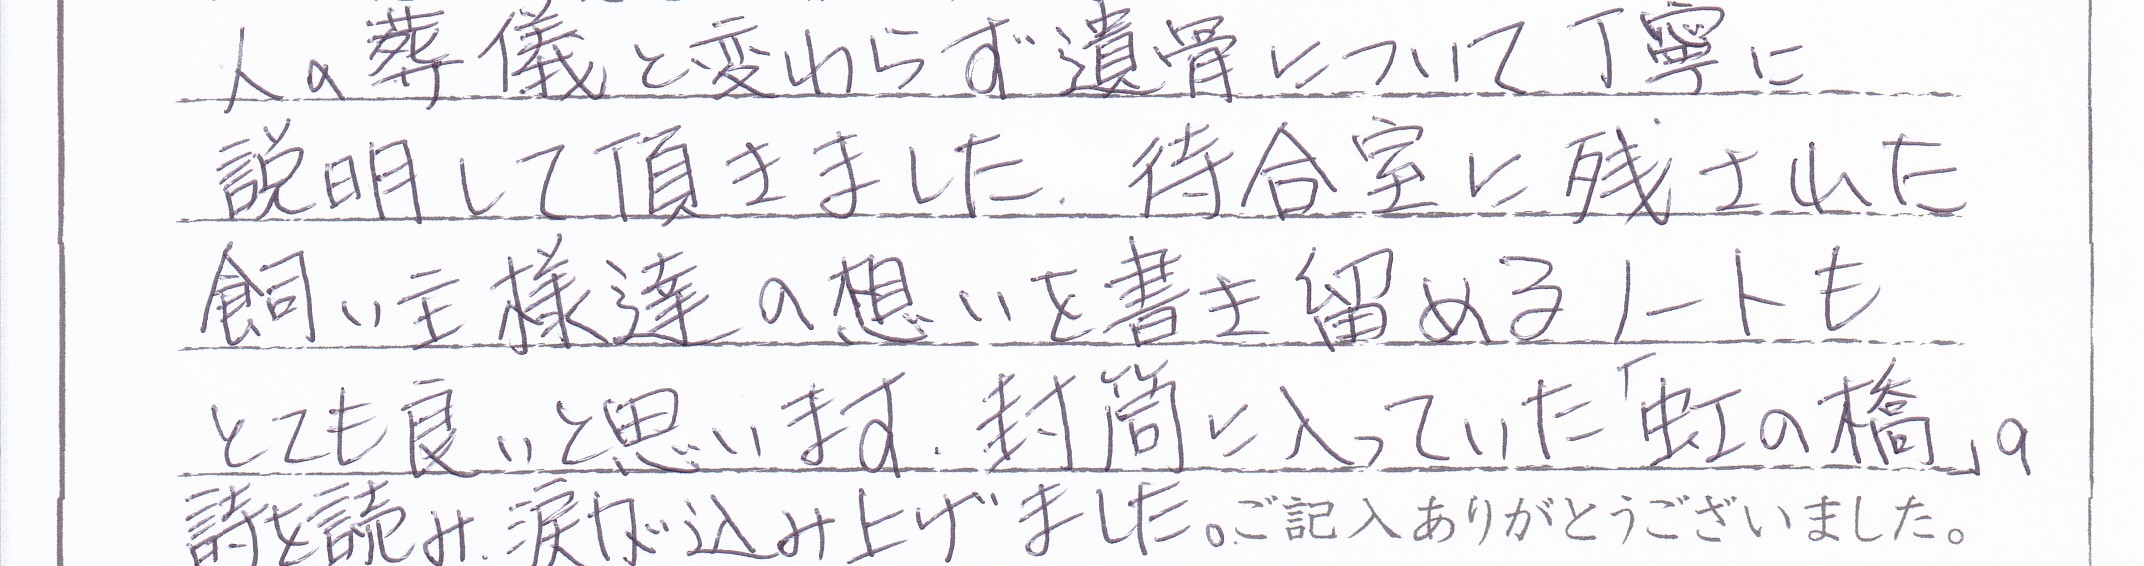 人の葬儀と変わらず遺骨について丁寧に
説明して頂きました.待合室に残された
飼い主様達の想いを書き留めるノートも
とても良いと思います.封筒に入っていた「虹の橋」の
詩を読み.涙が込み上げました。ご記入ありがとうございました。